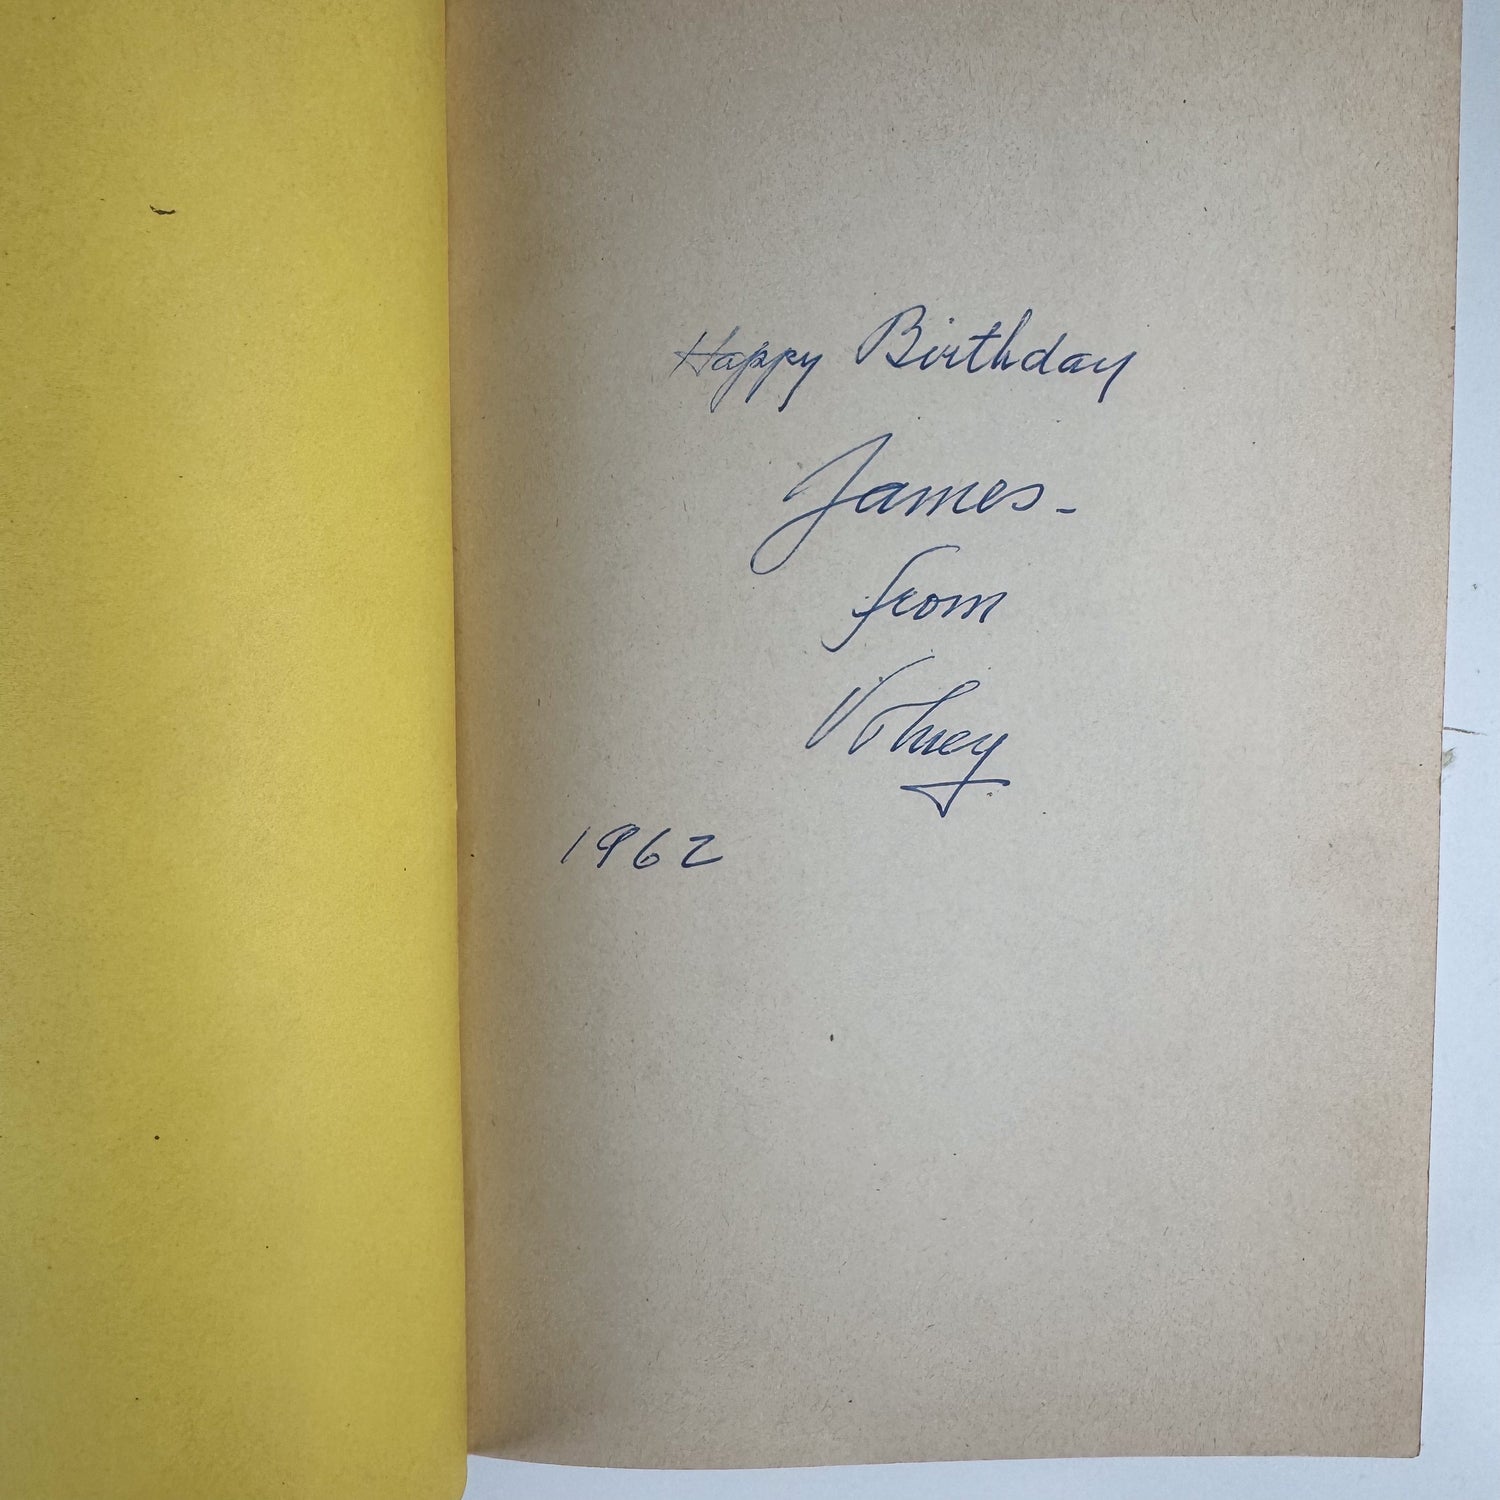 Happy Birthday
James-
from
Volney
1962